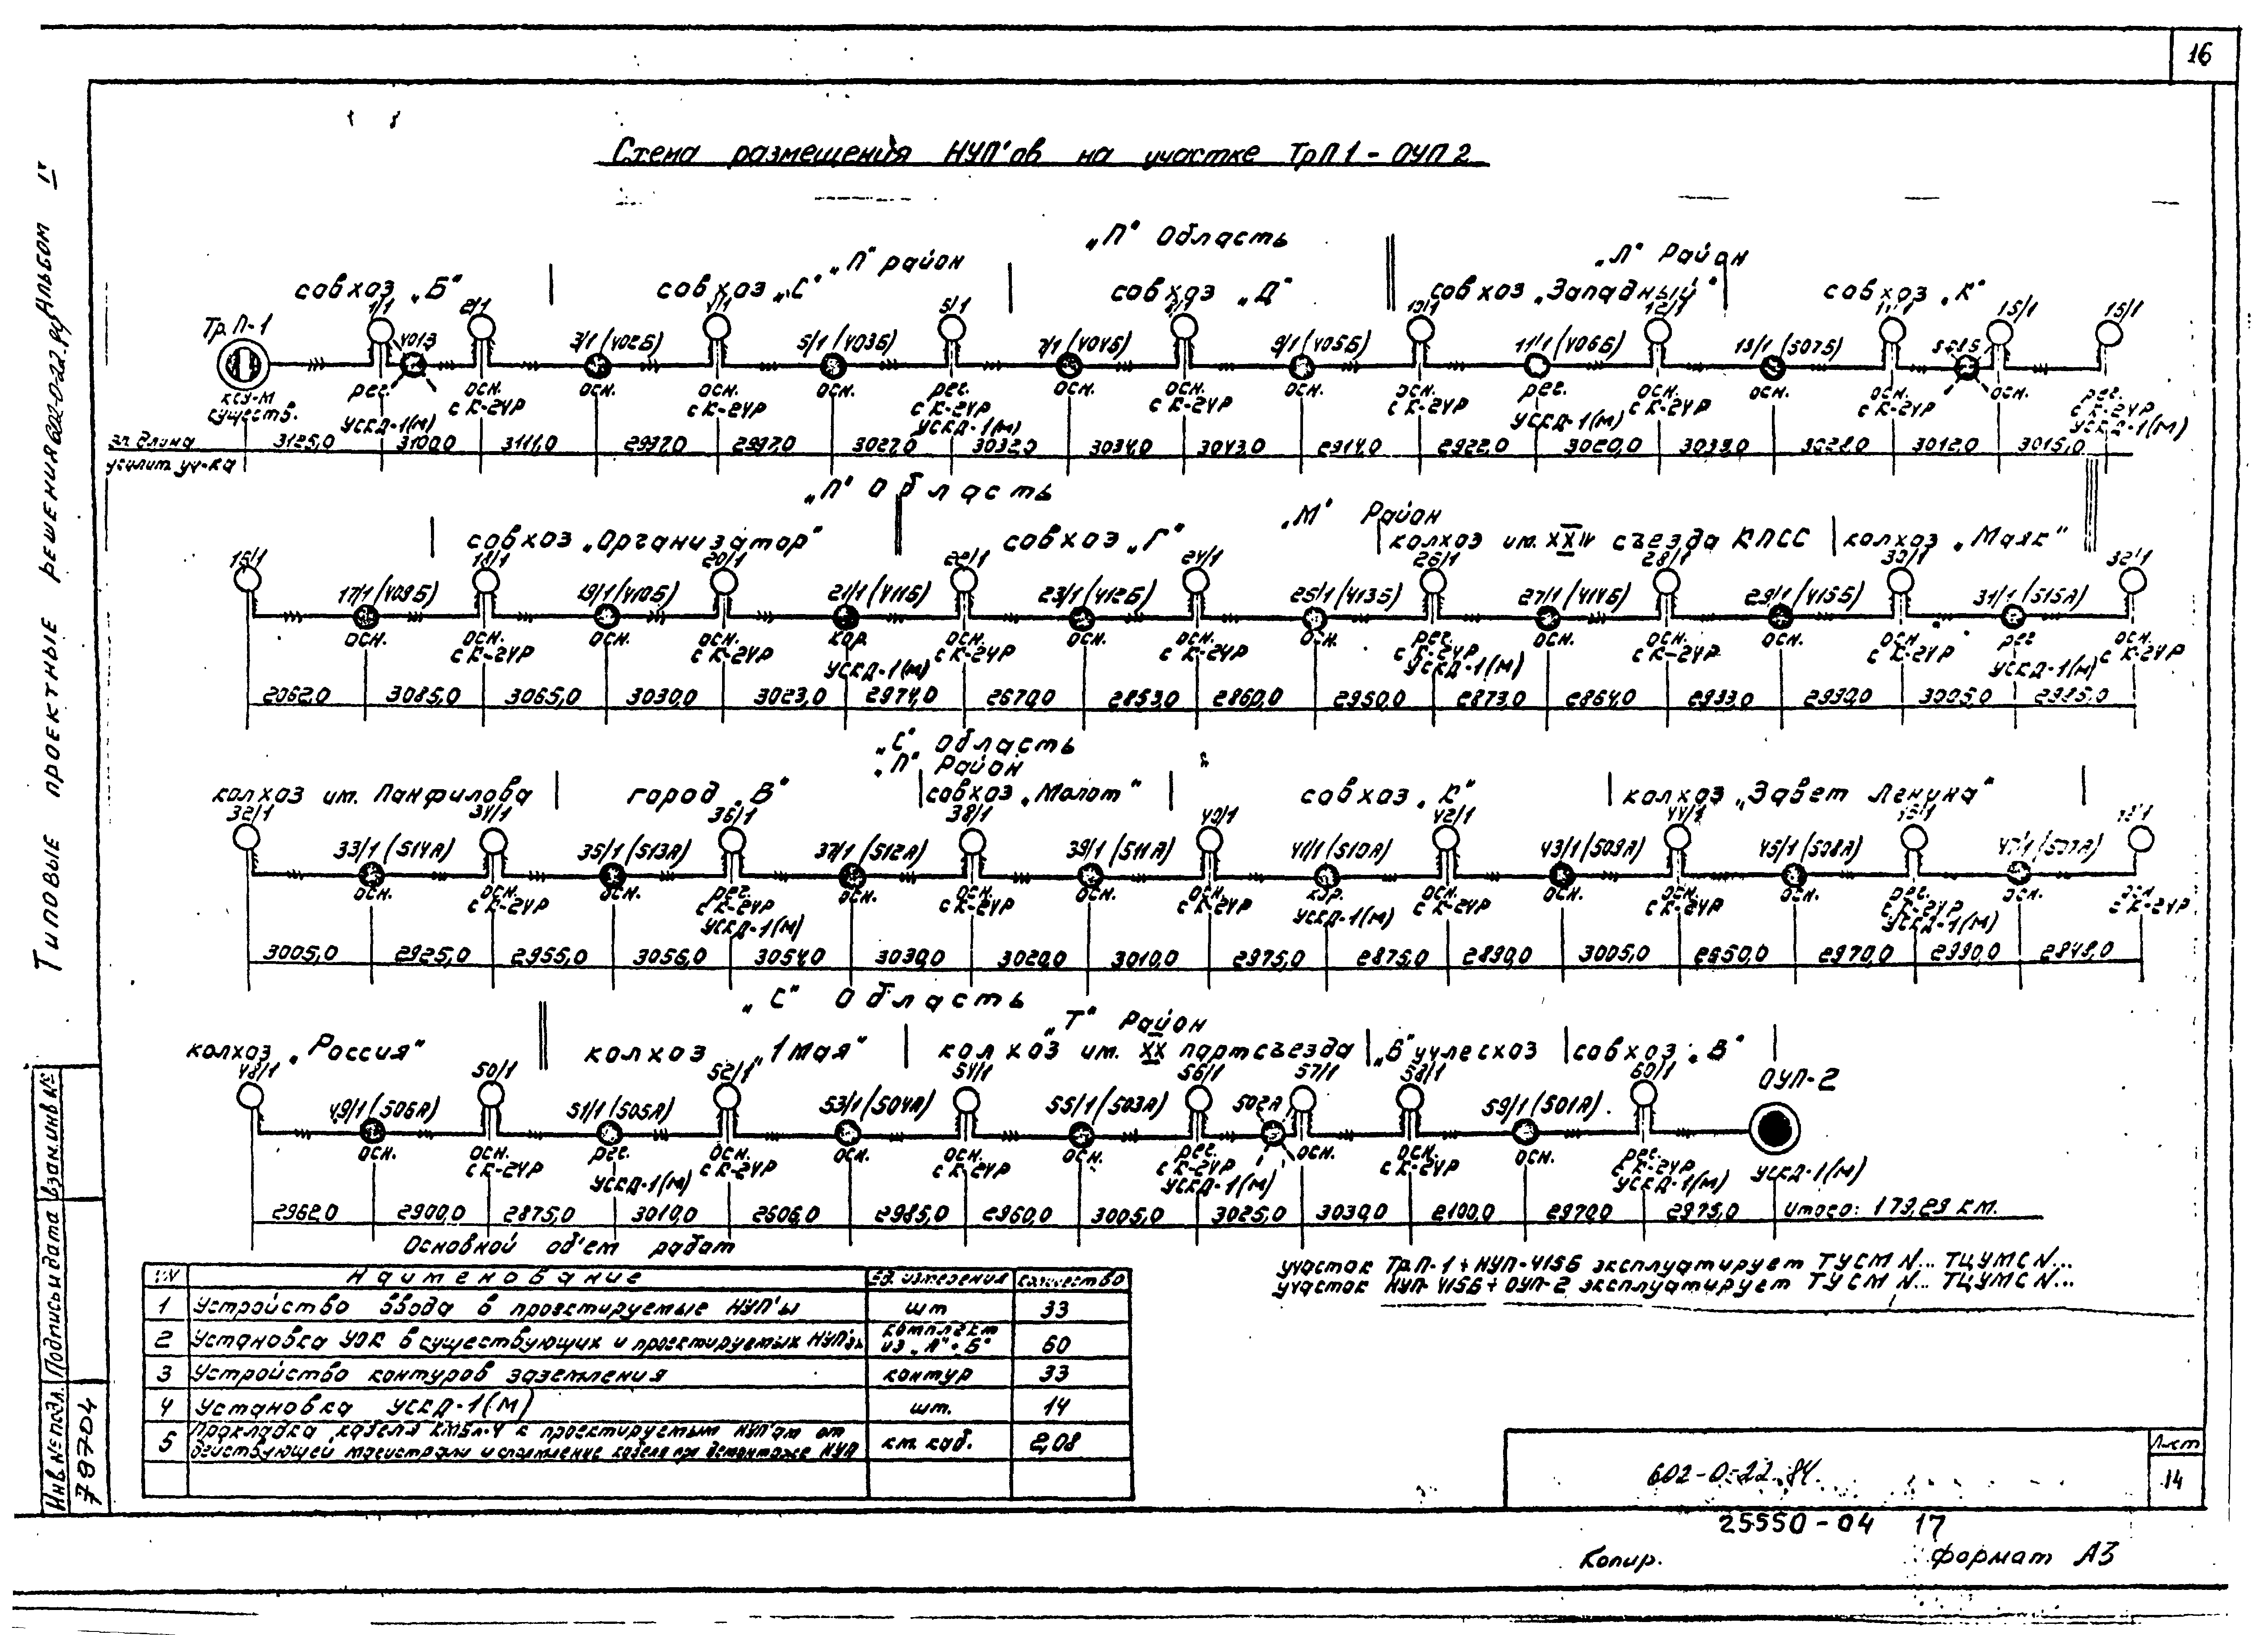 16
Схема размещения НУП'ов на участке ТрП1 - ОУП2
„П" Область
„П" район
„Л" Район
совхоз „Б"
совхоз „С"
совхоз „Д"
совхоз „Западный"
совхоз „К"
ТрП-1 1/1 2/1 3/1 (402Б) 5/1 (403Б) 7/1 (404Б) 9/1 (405Б) 11/1 (406Б) 12/1 13/1 (507Б) 15/1
рег. осн. осн. осн. осн. рег. осн. осн. осн. осн. рег. осн. осн. осн. осн. рег.
КСУ-М существ.
с К-24Р с К-24Р с К-24Р с К-24Р с К-24Р с К-24Р с К-24Р с К-24Р
УСКД-1(М) УСКД-1(М) УСКД-1(М) УСКД-1(М)
длина усилит. уч-ка
3125,0 3100,0 3111,0 2937,0 2997,0 3027,0 3032,0 3034,0 3043,0 2914,0 2922,0 3020,0 3039,0 3028,0 3012,0 3015,0
„П" Область
„М" Район
совхоз „Организатор"
совхоз „Г"
колхоз им. XXIV съезда КПСС
колхоз „Маяк"
17/1 (409Б) 19/1 (410Б) 20/1 21/1 (411Б) 22/1 23/1 (412Б) 24/1 25/1 (413Б) 26/1 27/1 (414Б) 28/1 29/1 (415Б) 30/1 31/1 (515А) 32/1
осн. осн. осн. осн. кор. осн. осн. осн. осн. рег. осн. осн. осн. осн. рег осн.
с К-24Р с К-24Р с К-24Р с К-24Р с К-24Р с К-24Р с К-24Р с К-24Р
УСКД-1(М) УСКД-1(М) УСКД-1(М)
2062,0 3085,0 3065,0 3030,0 3023,0 2974,0 2670,0 2853,0 2860,0 2950,0 2873,0 2864,0 2933,0 2990,0 3005,0 2985,0
„С" Область
„П" Район
колхоз им. Панфилова
город „В"
совхоз „Молот"
совхоз „К"
колхоз „Завет Ленина"
32/1 33/1 (514А) 34/1 35/1 (513А) 36/1 37/1 (512А) 38/1 39/1 (511А) 40/1 41/1 (510А) 42/1 43/1 (509А) 44/1 45/1 (508А) 47/1 (507А)
осн. осн. осн. рег. осн. осн. осн. осн. кор. осн. осн. осн. осн. рег. осн. осн.
с К-24Р с К-24Р с К-24Р с К-24Р с К-24Р с К-24Р с К-24Р с К-24Р
УСКД-1(М) УСКД-1(М) УСКД-1(М)
3005,0 2925,0 2955,0 3056,0 3054,0 3030,0 3020,0 3010,0 2975,0 2875,0 2890,0 3005,0 2650,0 2970,0 2990,0 2848,0
„С" Область
„Т" Район
колхоз „Россия"
колхоз „1 Мая"
колхоз им. XX партсъезда
„В" учлесхоз
совхоз „В"
48/1 49/1 (506А) 50/1 51/1 (505А) 52/1 53/1 (504А) 54/1 55/1 (503А) 56/1 502А 57/1 58/1 59/1 (501А) 60/1 ОУП-2
осн. осн. рег. осн. осн. осн. осн. рег. осн. осн. осн. рег.
с К-24Р с К-24Р с К-24Р с К-24Р с К-24Р с К-24Р
УСКД-1(М) УСКД-1(М) УСКД-1(М) УСКД-1(М)
2962,0 2900,0 2875,0 3010,0 2606,0 2985,0 2960,0 3005,0 3025,0 3030,0 2100,0 2970,0 2975,0 Итого: 179,29 км.
Основной об'ем работ
Наименование Ед. измерения Количество
1 Устройство ввода в проектируемые НУП'ы шт 33
2 Установка УОК в существующих и проектируемых НУП'ах комплект из „А" и „Б" 60
3 Устройство контуров заземления контур 33
4 Установка УСКД-1(М) шт. 14
5 Прокладка кабеля КМБл-4 к проектируемым НУП'ам от действующей магистрали и спрямление кабеля при демонтаже НУП км. каб. 2,08
участок ТрП-1 ÷ НУП-415Б эксплуатирует ТУСМ N... ТЦУМС N...
участок НУП-415Б ÷ ОУП-2 эксплуатирует ТУСМ N... ТЦУМС N...
602-0-22.84.
Лист
14
25550-04 17
Копир.
формат А3
Типовые проектные решения 602-0-22.84 Альбом IV
Инв.№ подл. Подпись и дата Взам.инв.№
79704